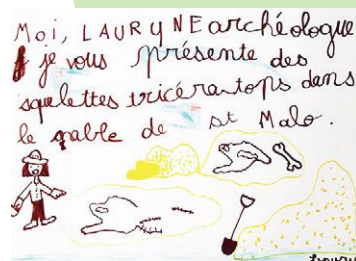 Moi, LAURYNE archéologue
je vous présente des
squelettes tricératops dans
le sable de st Malo.